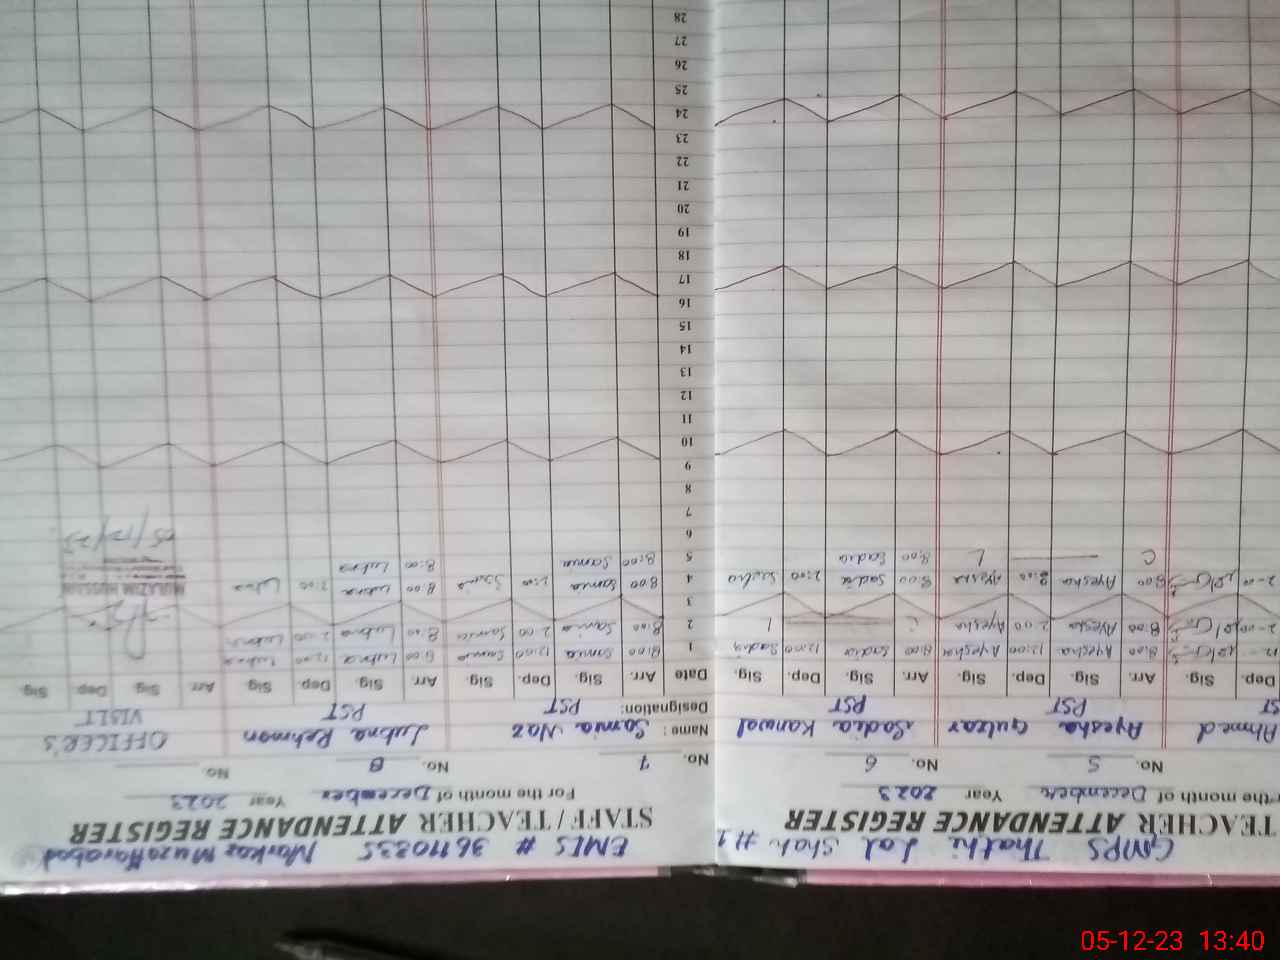 GMPS Thathi Lal Shah #1
TEACHER ATTENDANCE REGISTER
the month of December Year 2023
No. 5 No. 6
Ahmed Ayesha Gulzar Sadia Kanwal
PST PST
Dep. Sig. Arr. Sig. Dep. Sig. Arr. Sig. Dep. Sig.
8:00 Ayesha 12:00 Ayesha 8:00 Sadia 12:00 Sadia
2:00 8:00 Ayesha 2:00 Ayesha L L
2:00 8:00 Ayesha 2:00 Ayesha 8:00 Sadia 2:00 Sadia
C L 8:00 Sadia
EMIS # 36110235 Markaz Muzaffarabad
STAFF / TEACHER ATTENDANCE REGISTER
For the month of December Year 2023
No. 7 No. 8 No.
Name : Samia Naz Lubna Rehman OFFICER'S
Designation: PST PST VISIT
Date Arr. Sig. Dep. Sig. Arr. Sig. Dep. Sig. Arr. Sig. Dep. Sig.
1 8:00 Samia 12:00 Samia 8:00 Lubna 12:00 Lubna
2 8:00 Samia 2:00 Samia 8:00 Lubna 2:00 Lubna
3
4 8:00 Samia 2:00 Samia 8:00 Lubna 2:00 Lubna MULAZIM HUSSAIN
5 8:00 Samia 8:00 Lubna
6 05/12/23
7
8
9
10
11
12
13
14
15
16
17
18
19
20
21
22
23
24
25
26
27
28
05-12-23 13:40